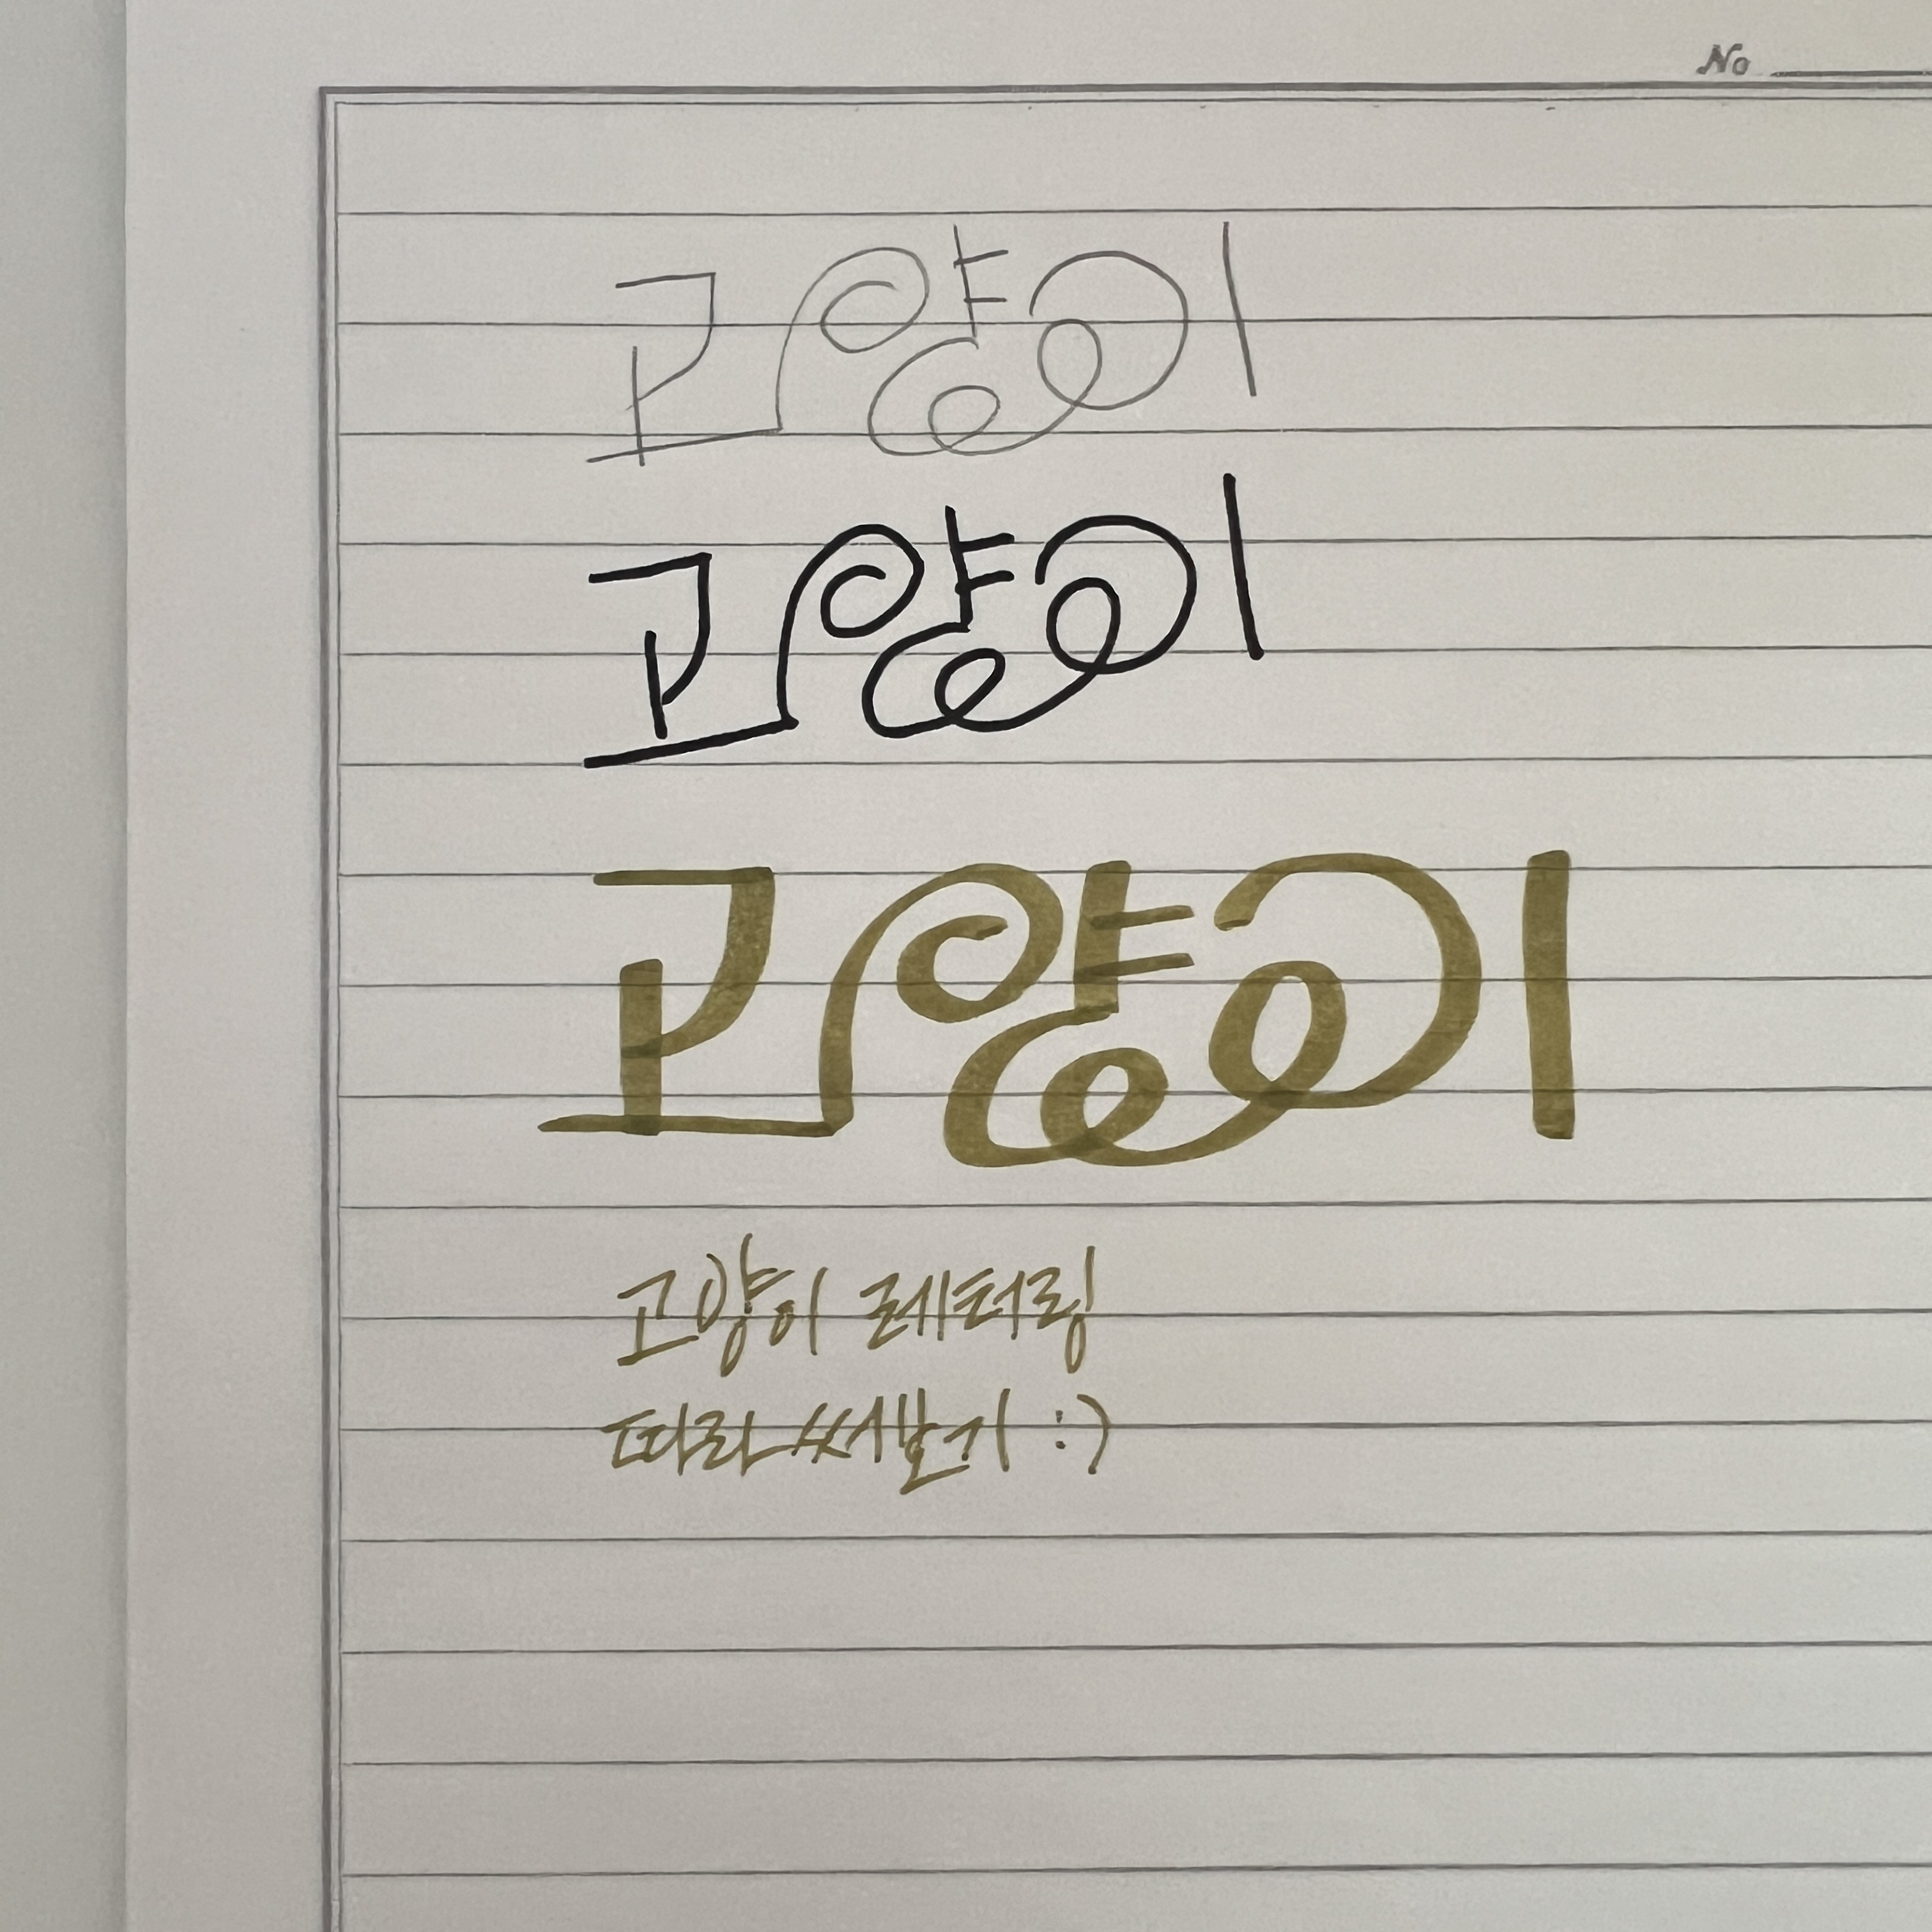 No
고양이
고양이
고양이
고양이 레터링
따라 써보기 :)